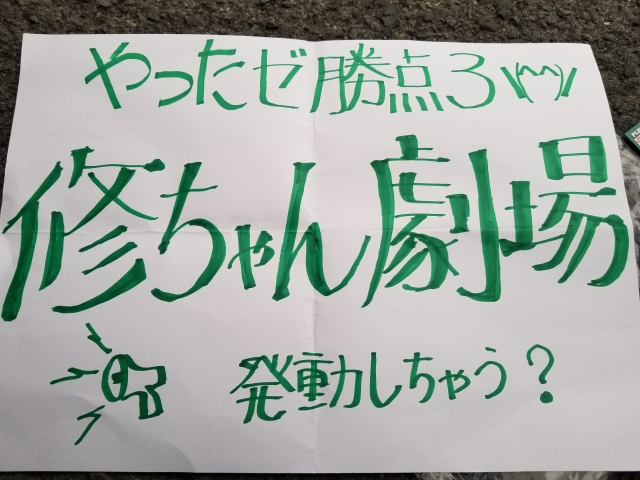 やったゼ勝点3\(^^)/
修ちゃん劇場
発動しちゃう?